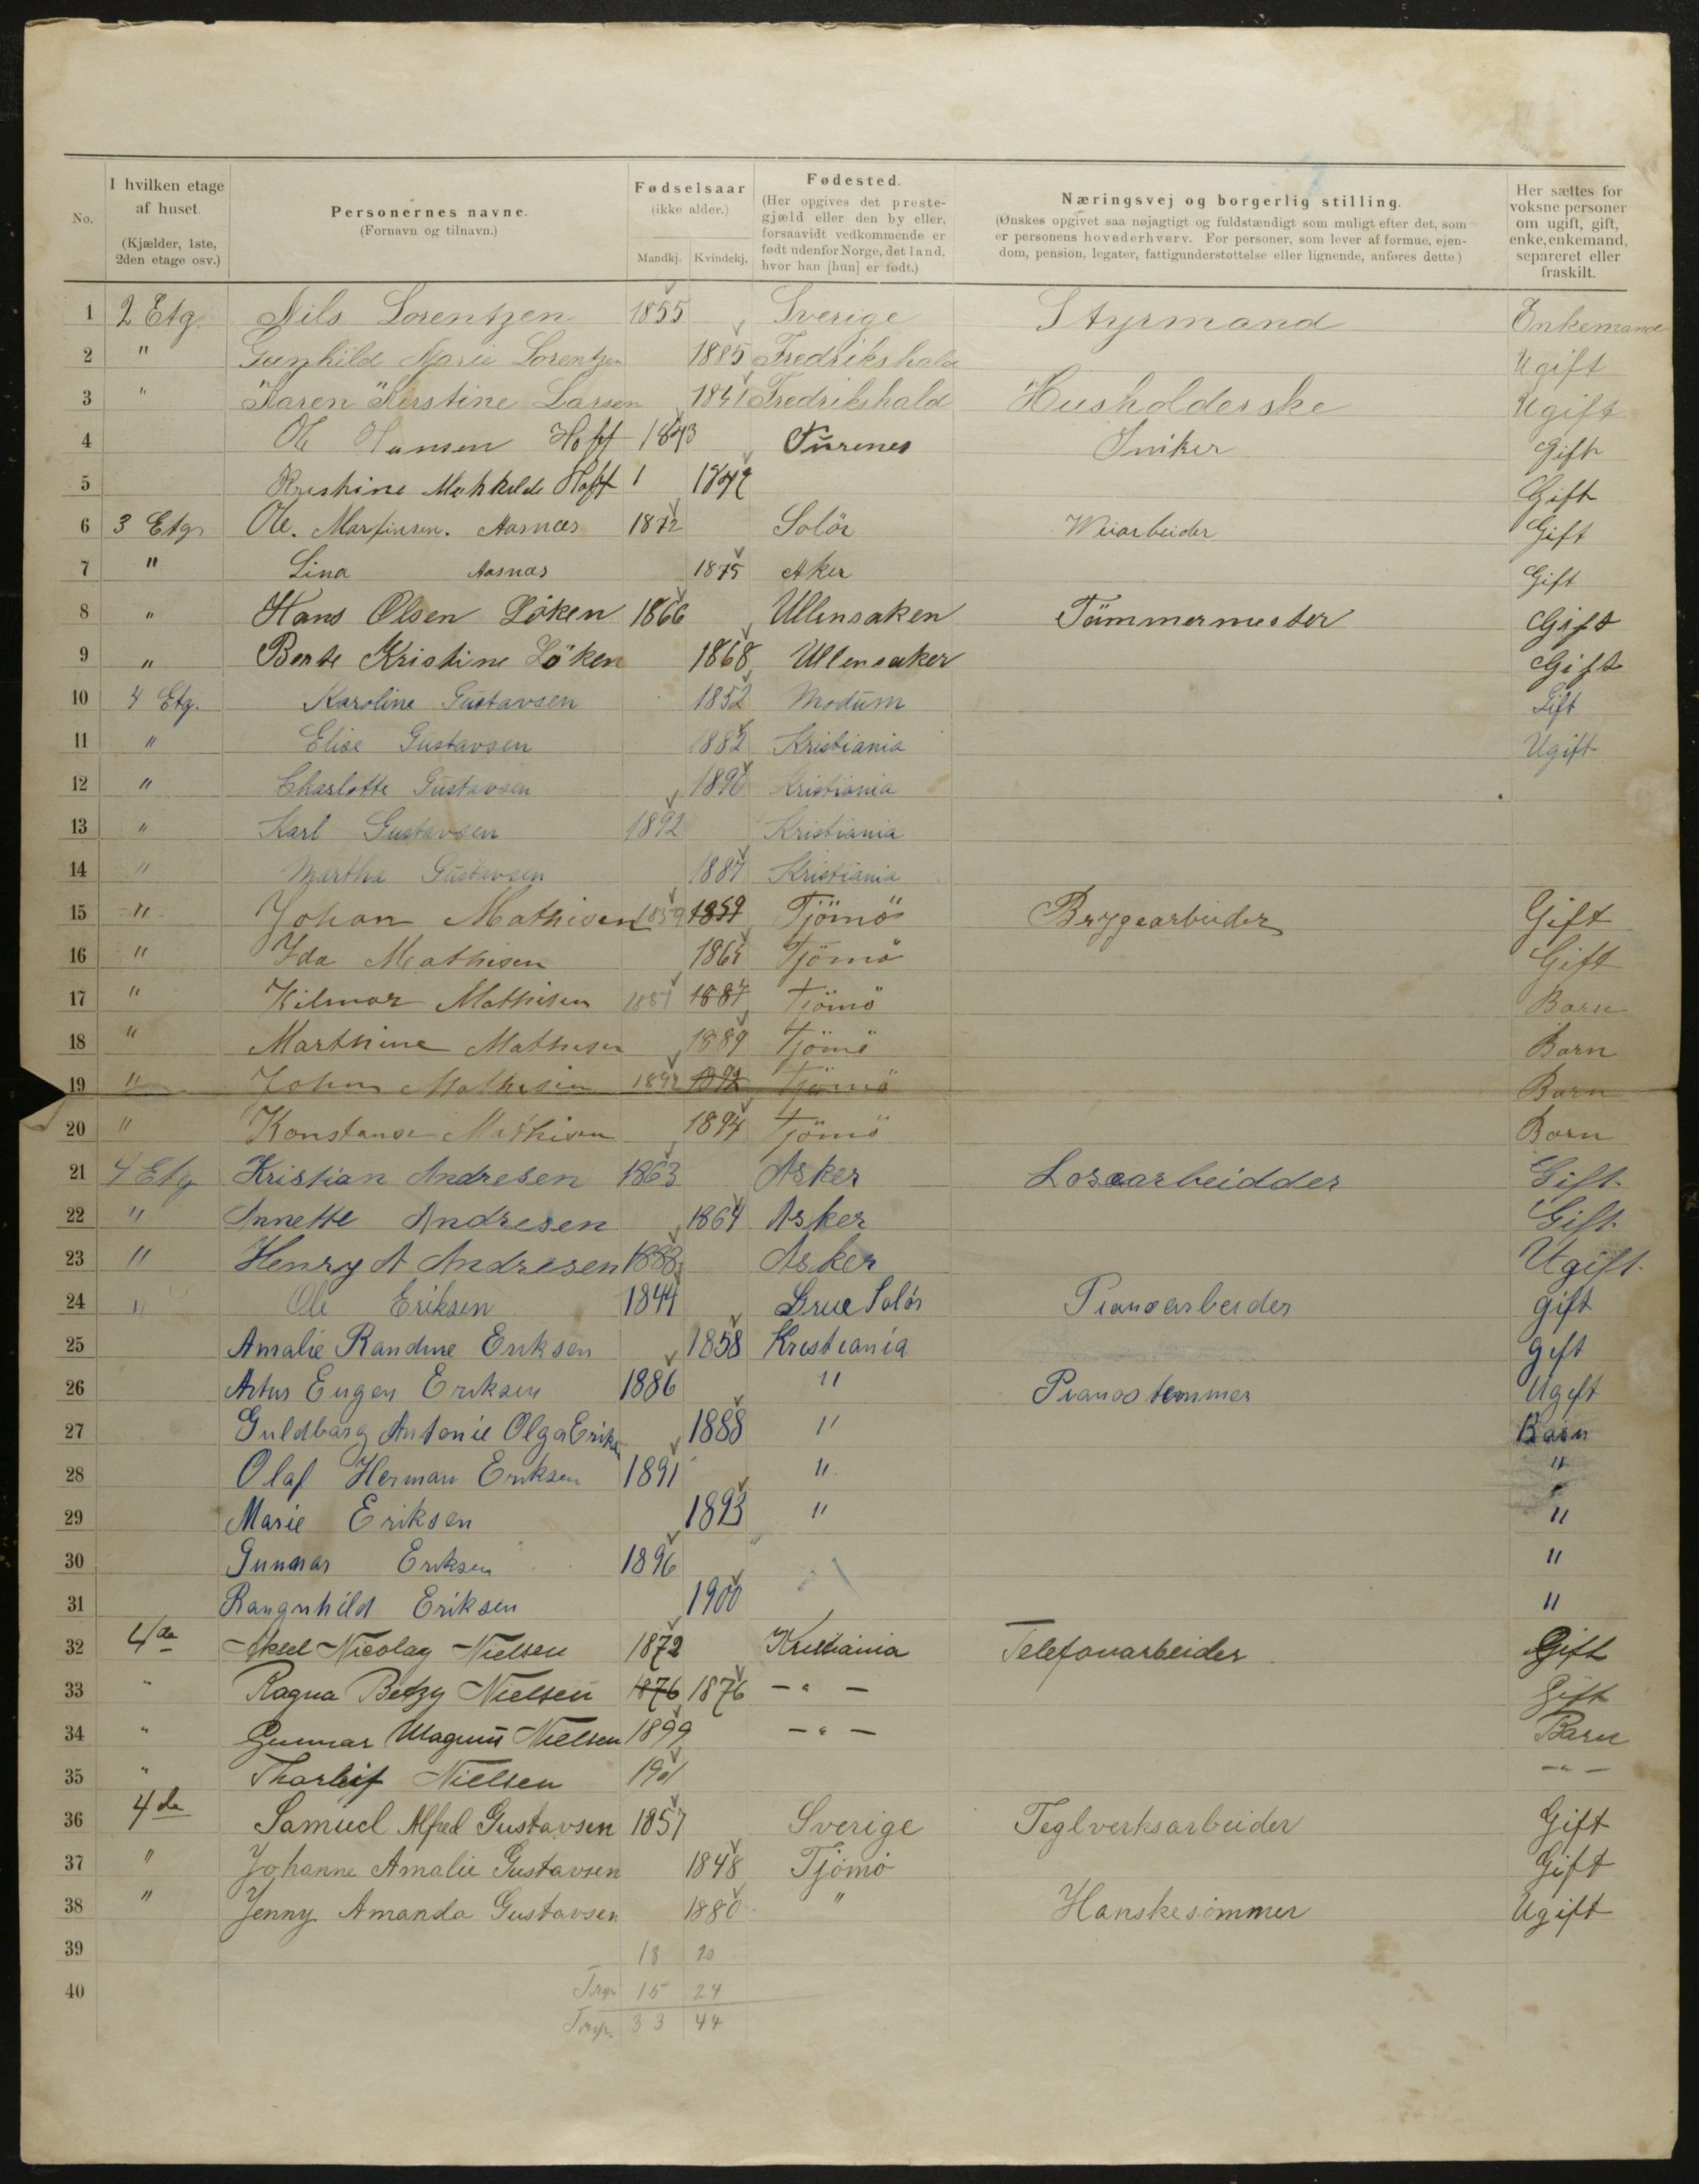 No.
I hvilken etage af huset. (Kjælder, 1ste, 2den etage osv.)
Personernes navne. (Fornavn og tilnavn.)
Fødselsaar (ikke alder.) Mandkj. Kvindekj.
Fødested. (Her opgives det prestegjæld eller den by eller, forsaavidt vedkommende er født udenfor Norge, det land, hvor han [hun] er født.)
Næringsvej og borgerlig stilling. (Ønskes opgivet saa nøjagtigt og fuldstændigt som muligt efter det, som er personens hovederhverv. For personer, som lever af formue, ejendom, pension, legater, fattigunderstøttelse eller lignende, anføres dette)
Her sættes for voksne personer om ugift, gift, enke, enkemand, separeret eller fraskilt.
1 2 Etg. Nils Lorentzen 1855 Sverige Styrmand Enkemand
2 " Gunhild Marie Lorentzen 1885 Fredrikshald Ugift
3 " Karen Kirstine Larsen Fredrikshald Husholderske Ugift
4 Ole Hansen Hoff 1843 Furenes Sniker Gift
5 Kristine Mathilde Hoff 1 1842 Gift
6 3 Etg Ole. Martinsen. Aasnæs 1872 Solör Weiarbeider Gift
7 " Lina Aasnæs 1875 Aker Gift
8 " Hans Olsen Löken 1866 Ullensaken Tömmermester Gift
9 " Berte Kristine Löken 1868 Ullensaker Gift
10 4 Etg. Karoline Gustavsen 1852 Modum Gift
11 " Elise Gustavsen 1882 Kristiania Ugift
12 " Charlotte Gustavsen 1890 Kristiania
13 " Karl Gustavsen 1892 Kristiania
14 " Martha Gustavsen 1887 Kristiania
15 " Johan Mathisen 1859 1859 Tjömö Bryggearbeider Gift
16 " Ida Mathisen 1865 Tjömö Gift
17 " Hilmar Mathisen 1887 1887 Tjömö Barn
18 " Marthine Mathisen 1889 Tjömö Barn
19 " Johan Mathisen 1892 1892 Tjömö Barn
20 " Konstanse Mathisen 1894 Tjömö Barn
21 4 Etg Kristian Andresen 1863 Asker Losearbeidder Gift
22 " Annette Andresen 1864 Asker Gift
23 " Henry A Andresen 1888 Asker Ugift
24 " Ole Eriksen 1844 Grue Solör Pianoarbeider gift
25 Amalie Randine Eriksen 1858 Kristiania gift
26 Artur Eugen Eriksen 1886 " Pianostemmer Ugift
27 Guldbarg Antonie Olga Eriksen 1888 " Barn
28 Olaf Herman Eriksen 1891 " "
29 Marie Eriksen 1893 " "
30 Gunnar Eriksen 1896 " "
31 Rangnhild Eriksen 1900 "
32 4de Aksel Nicolay Nielsen 1872 Kristiania Telefonarbeider Gift
33 " Ragna Betzy Nielsen 1876 1876 — " — Gift
34 " Gunnar Magnus Nielsen 1899 — " — Barn
35 " Thorleif Nielsen 1901 — " —
36 4de Samuel Alfred Gustavsen 1857 Sverige Teglverksarbeider Gift
37 " Johanne Amalie Gustavsen 1848 Tjömö Gift
38 " Jenny Amanda Gustavsen 1880 " Hanskesömmer Ugift
39 18 20
40 15 24
33 44